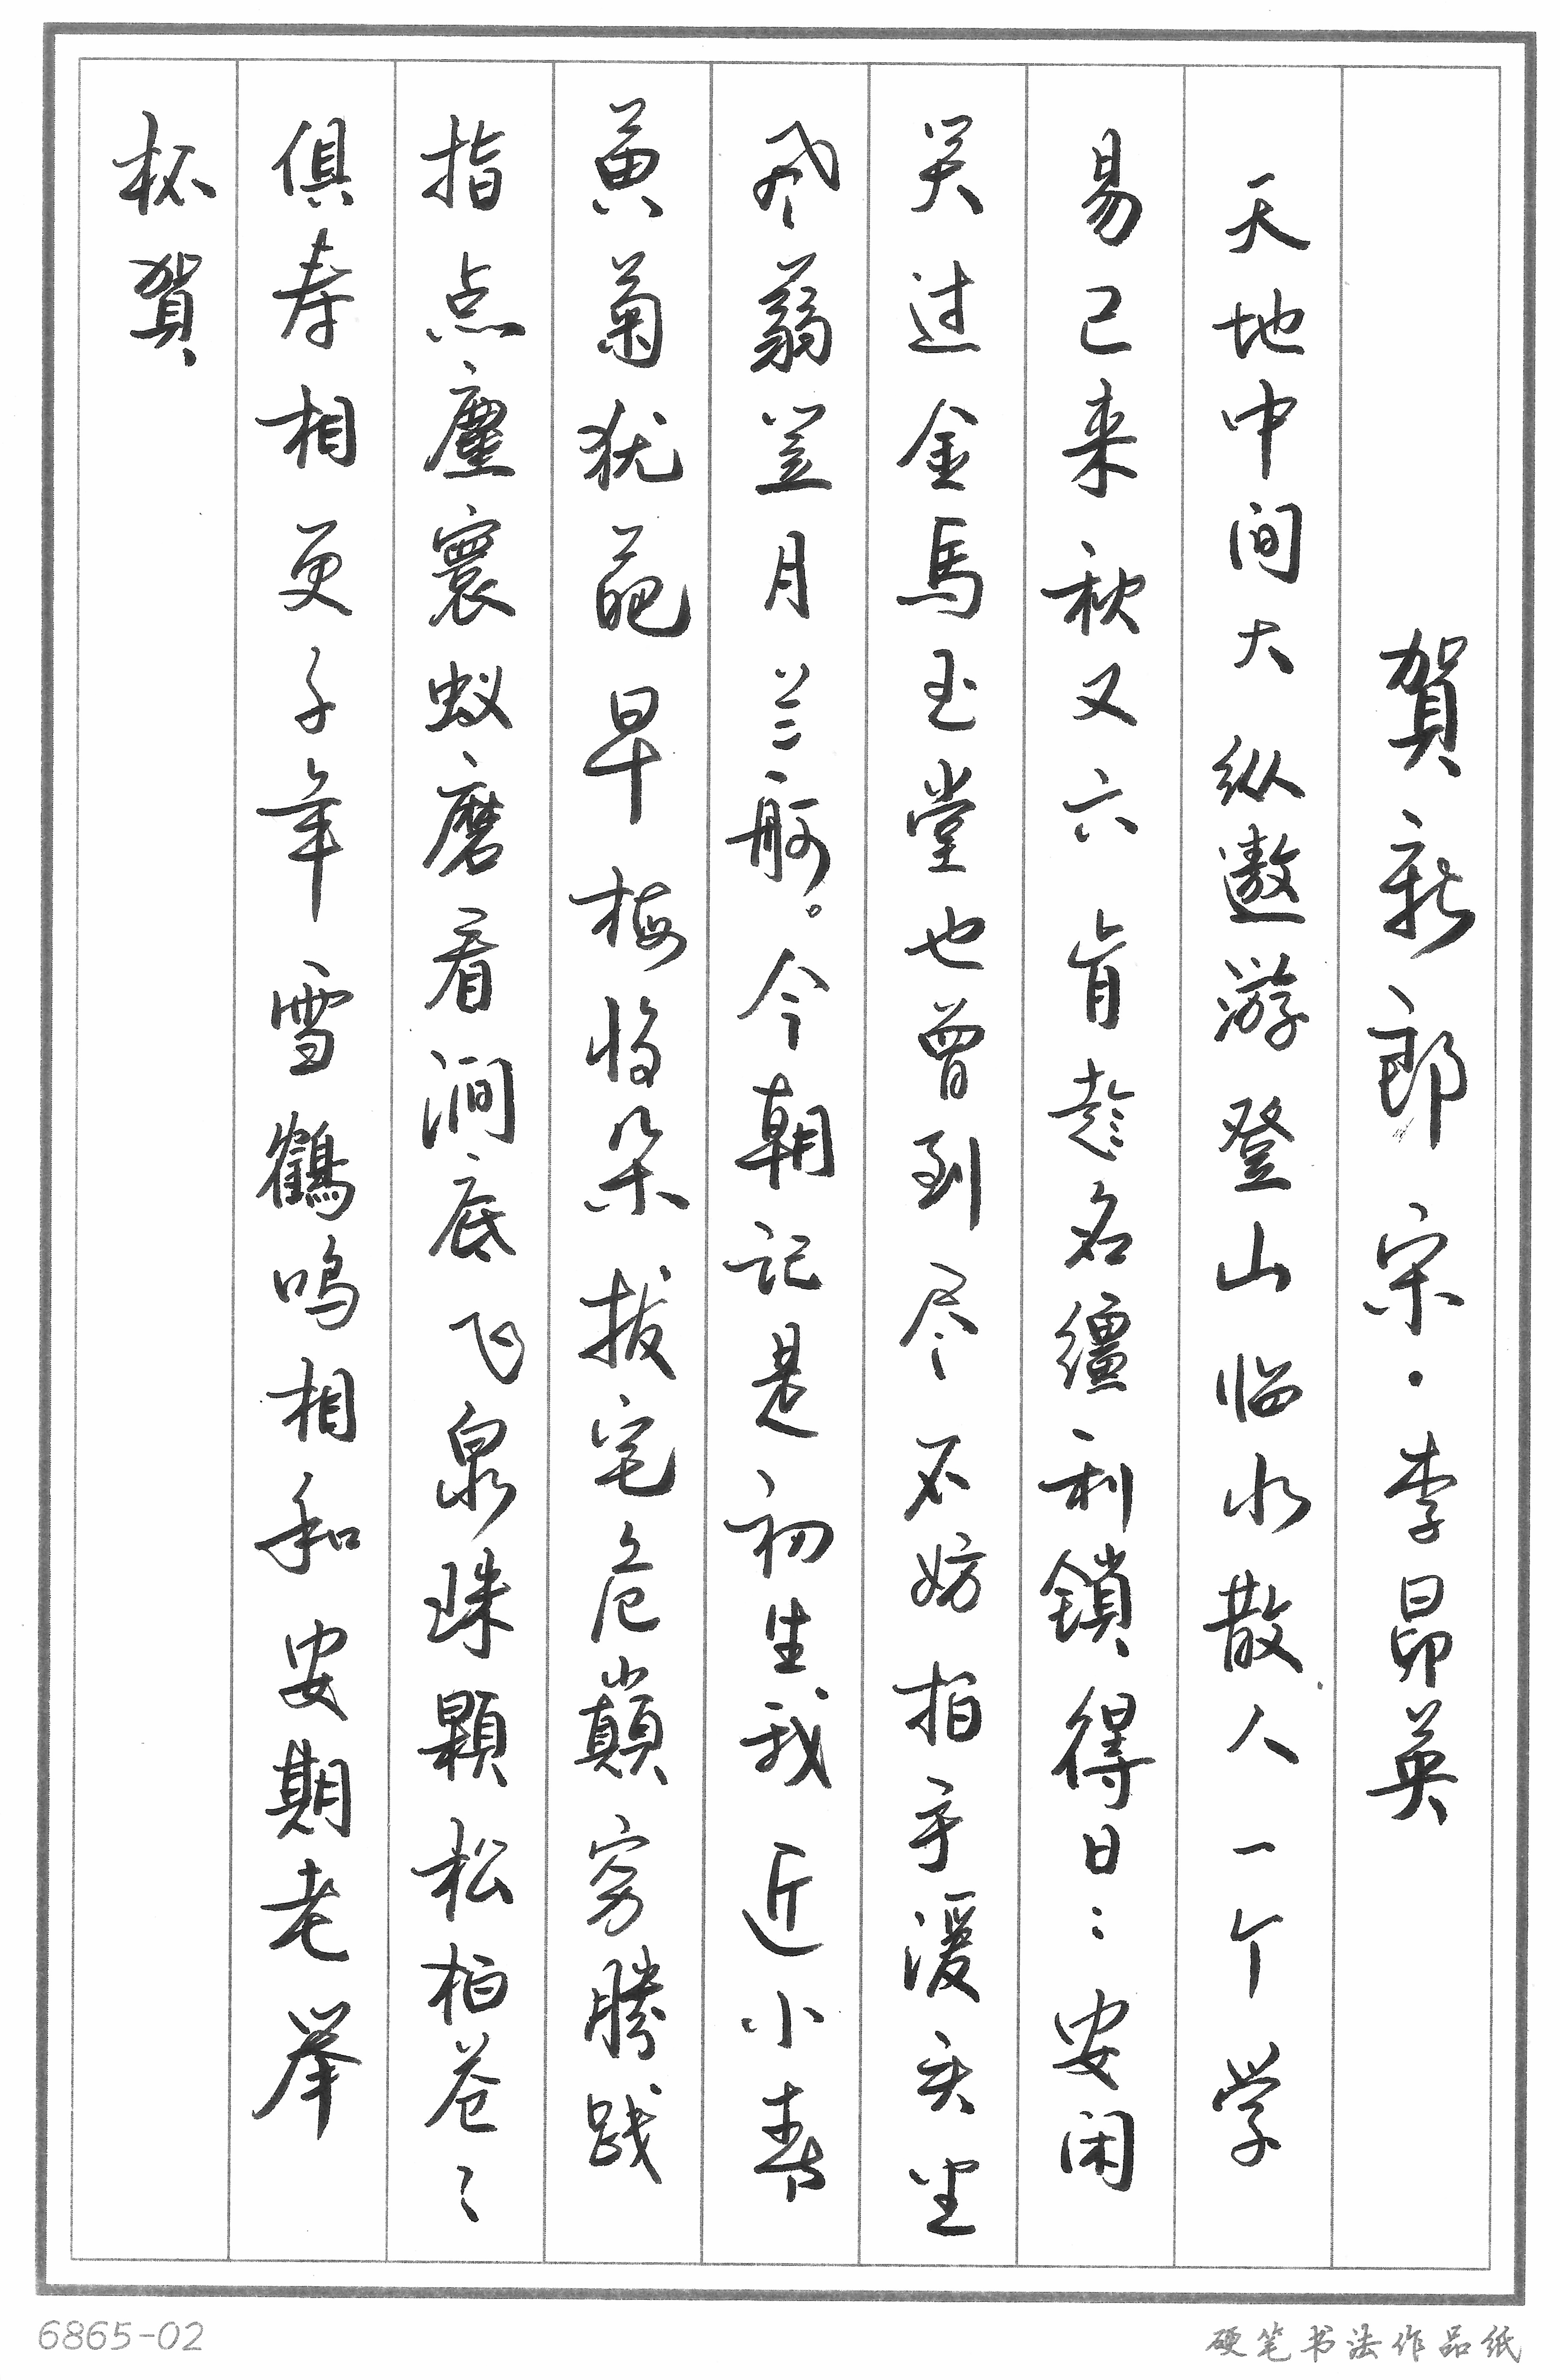 賀新郎 宋·李昴英
天地中间大纵遨游登山临水散人一个学
易已来秋又六肯趁名缰利鎖得日〻安闲
关过金馬玉堂也曾到尽不妨拍手漫天坐
风蒻笠月兰舸。今朝记是初生我近小春
黄菊犹葩早梅将朵拔宅危巔穷騰践
指点塵寰蚁磨看涧底飞泉珠顆松柏苍〻
俱寿相更子年雪鶴鸣相和安期老举
杯賀
6865-02
硬笔书法作品纸